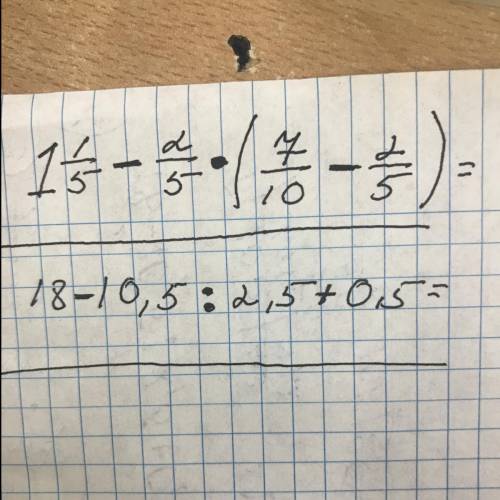 1 1/5 - 2/5 · (7/10 - 2/5) =
18-10,5 : 2,5+0,5=